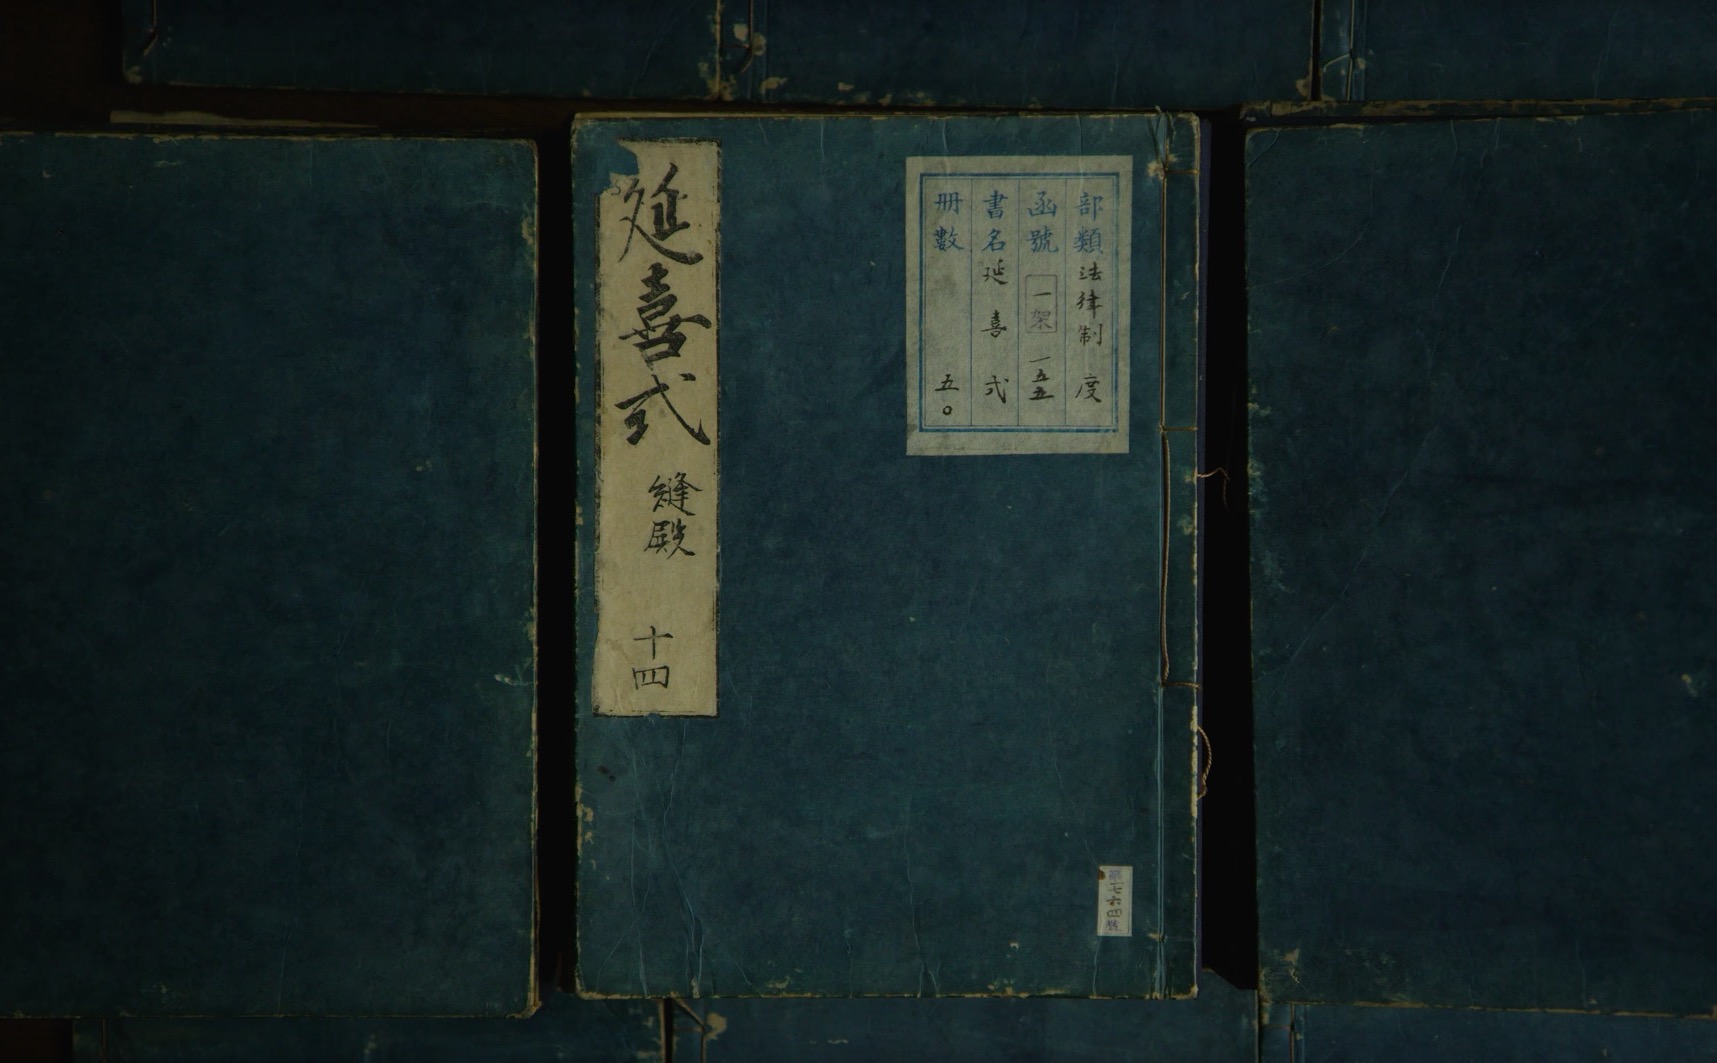 延喜式 縫殿 十四
部類 法律制度
函號 一架 一五五
書名 延喜式
冊數 五〇
第一七六四號